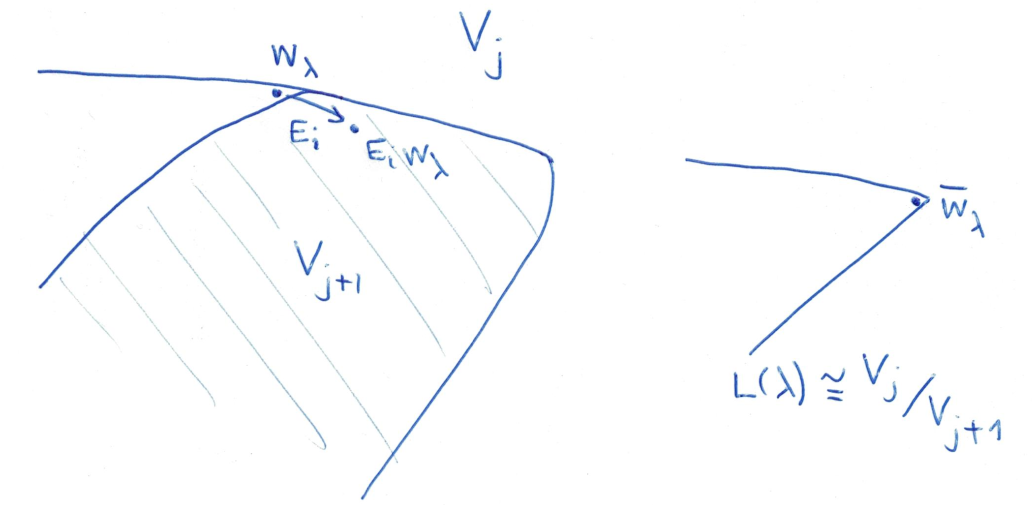 V_j
w_λ
E_i
E_i w_λ
V_{j+1}
w̄_λ
L(λ) ≅ V_j / V_{j+1}